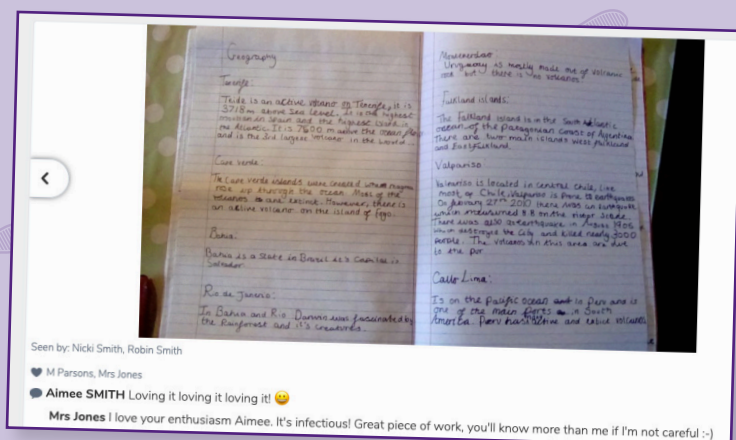 Geography
Tenerife:
Teide is an active volcano on Tenerife, it is
3718m above sea level. It is the highest
mountain in Spain and the highest point in
the Atlantic. It is 7500 m above the ocean floor
and is the 3rd largest volcano in the world
Cape Verde:
The Cape Verde islands were created when magma
rose up through the ocean. Most of the
volcanos are extinct. However, there is
an active volcano on the island of fogo.
Bahia:
Bahia is a state in Brazil it's Capital is
Salvador
Rio de Janerio:
In Bahia and Rio Darwin was fascinated by
the Rainforest and it's creatures.
Montevideo
Uruguay is mostly made me of volcanic
rock but there is no volcanos.
Falkland islands:
The Falkland island is in the South Atlantic
ocean of the Patagonian Coast of Agentina
There are two main islands West Falkland
and East Falkland.
Valpariso
Valpariso is located in central Chile, like
most of Chile Valpariso is Prone to earthquakes
On february 27th 2010 there was an earthquake
which measured 8.8 on the ricter Scale.
There was also an earthquake in August 1906
which destroyed the city and killed nearly 3000
people. The volcanos in this area are due
to the pur
Callo Lima:
Is on the pacific ocean in Peru and is
one of the main Ports in South
America. Peru has active and extict volcanos
Seen by: Nicki Smith, Robin Smith
M Parsons, Mrs Jones
Aimee SMITH Loving it loving it loving it! 😀
Mrs Jones I love your enthusiasm Aimee. It's infectious! Great piece of work, you'll know more than me if I'm not careful :-)